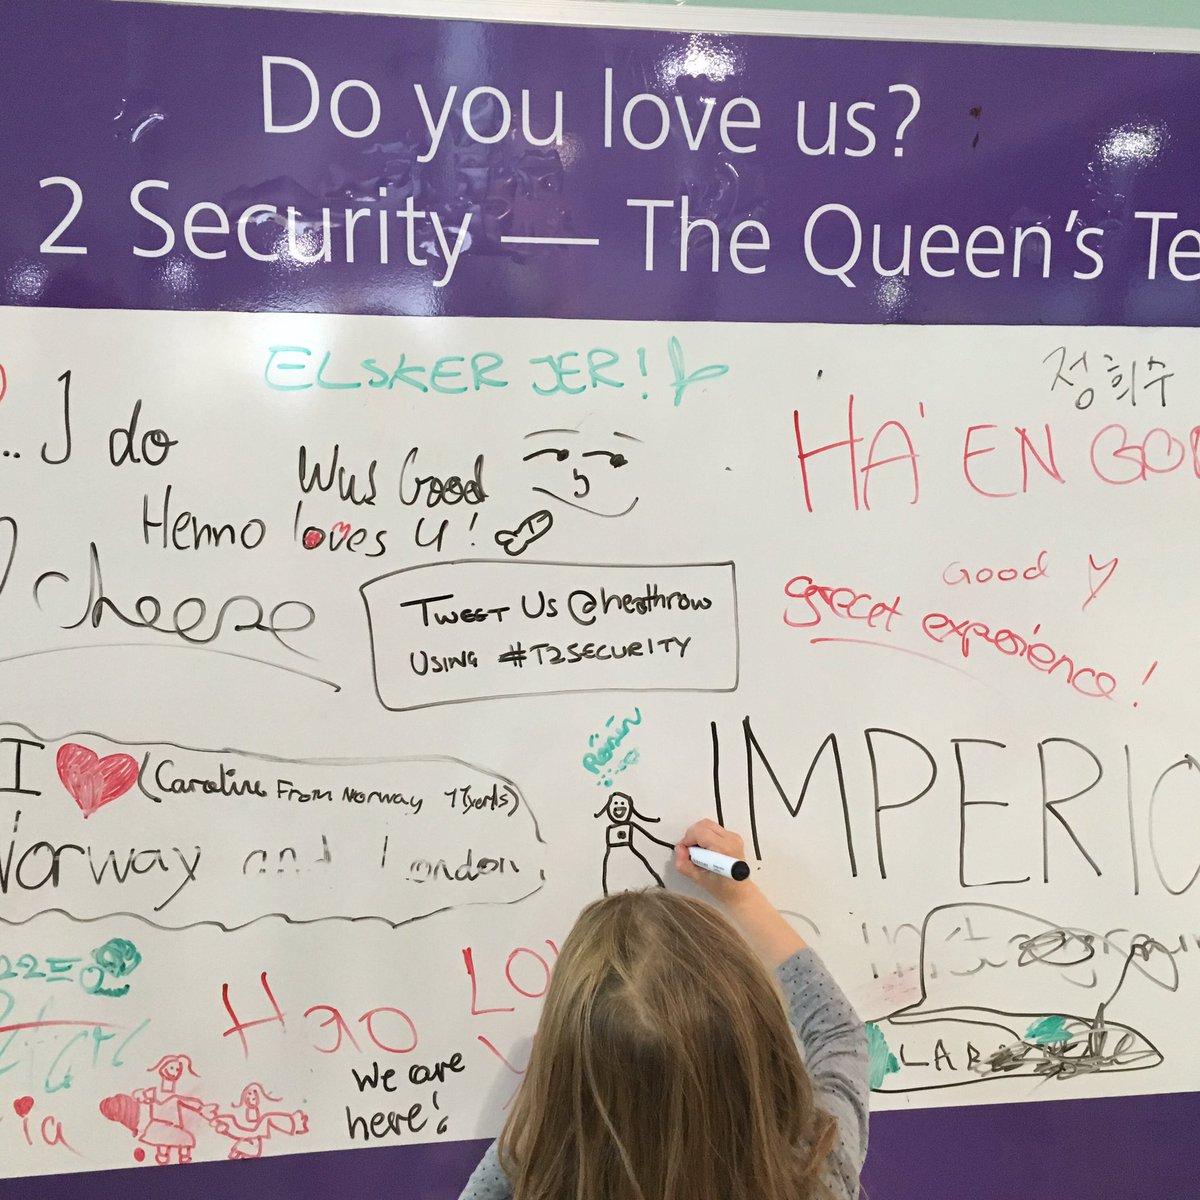 Do you love us?
2 Security — The Queen's Te
ELSKER JER!
정희수
... I do
HA' EN GOD
Was Good
Henno loves U!
Cheese
TWEET US @heathrow
USING #T2SECURITY
Good
great experience!
I (Caroline From Norway 11years)
Norway and London
Rónán
IMPERIO
instagram
22=
Hao
LOV
LAR
We are
here!
ia